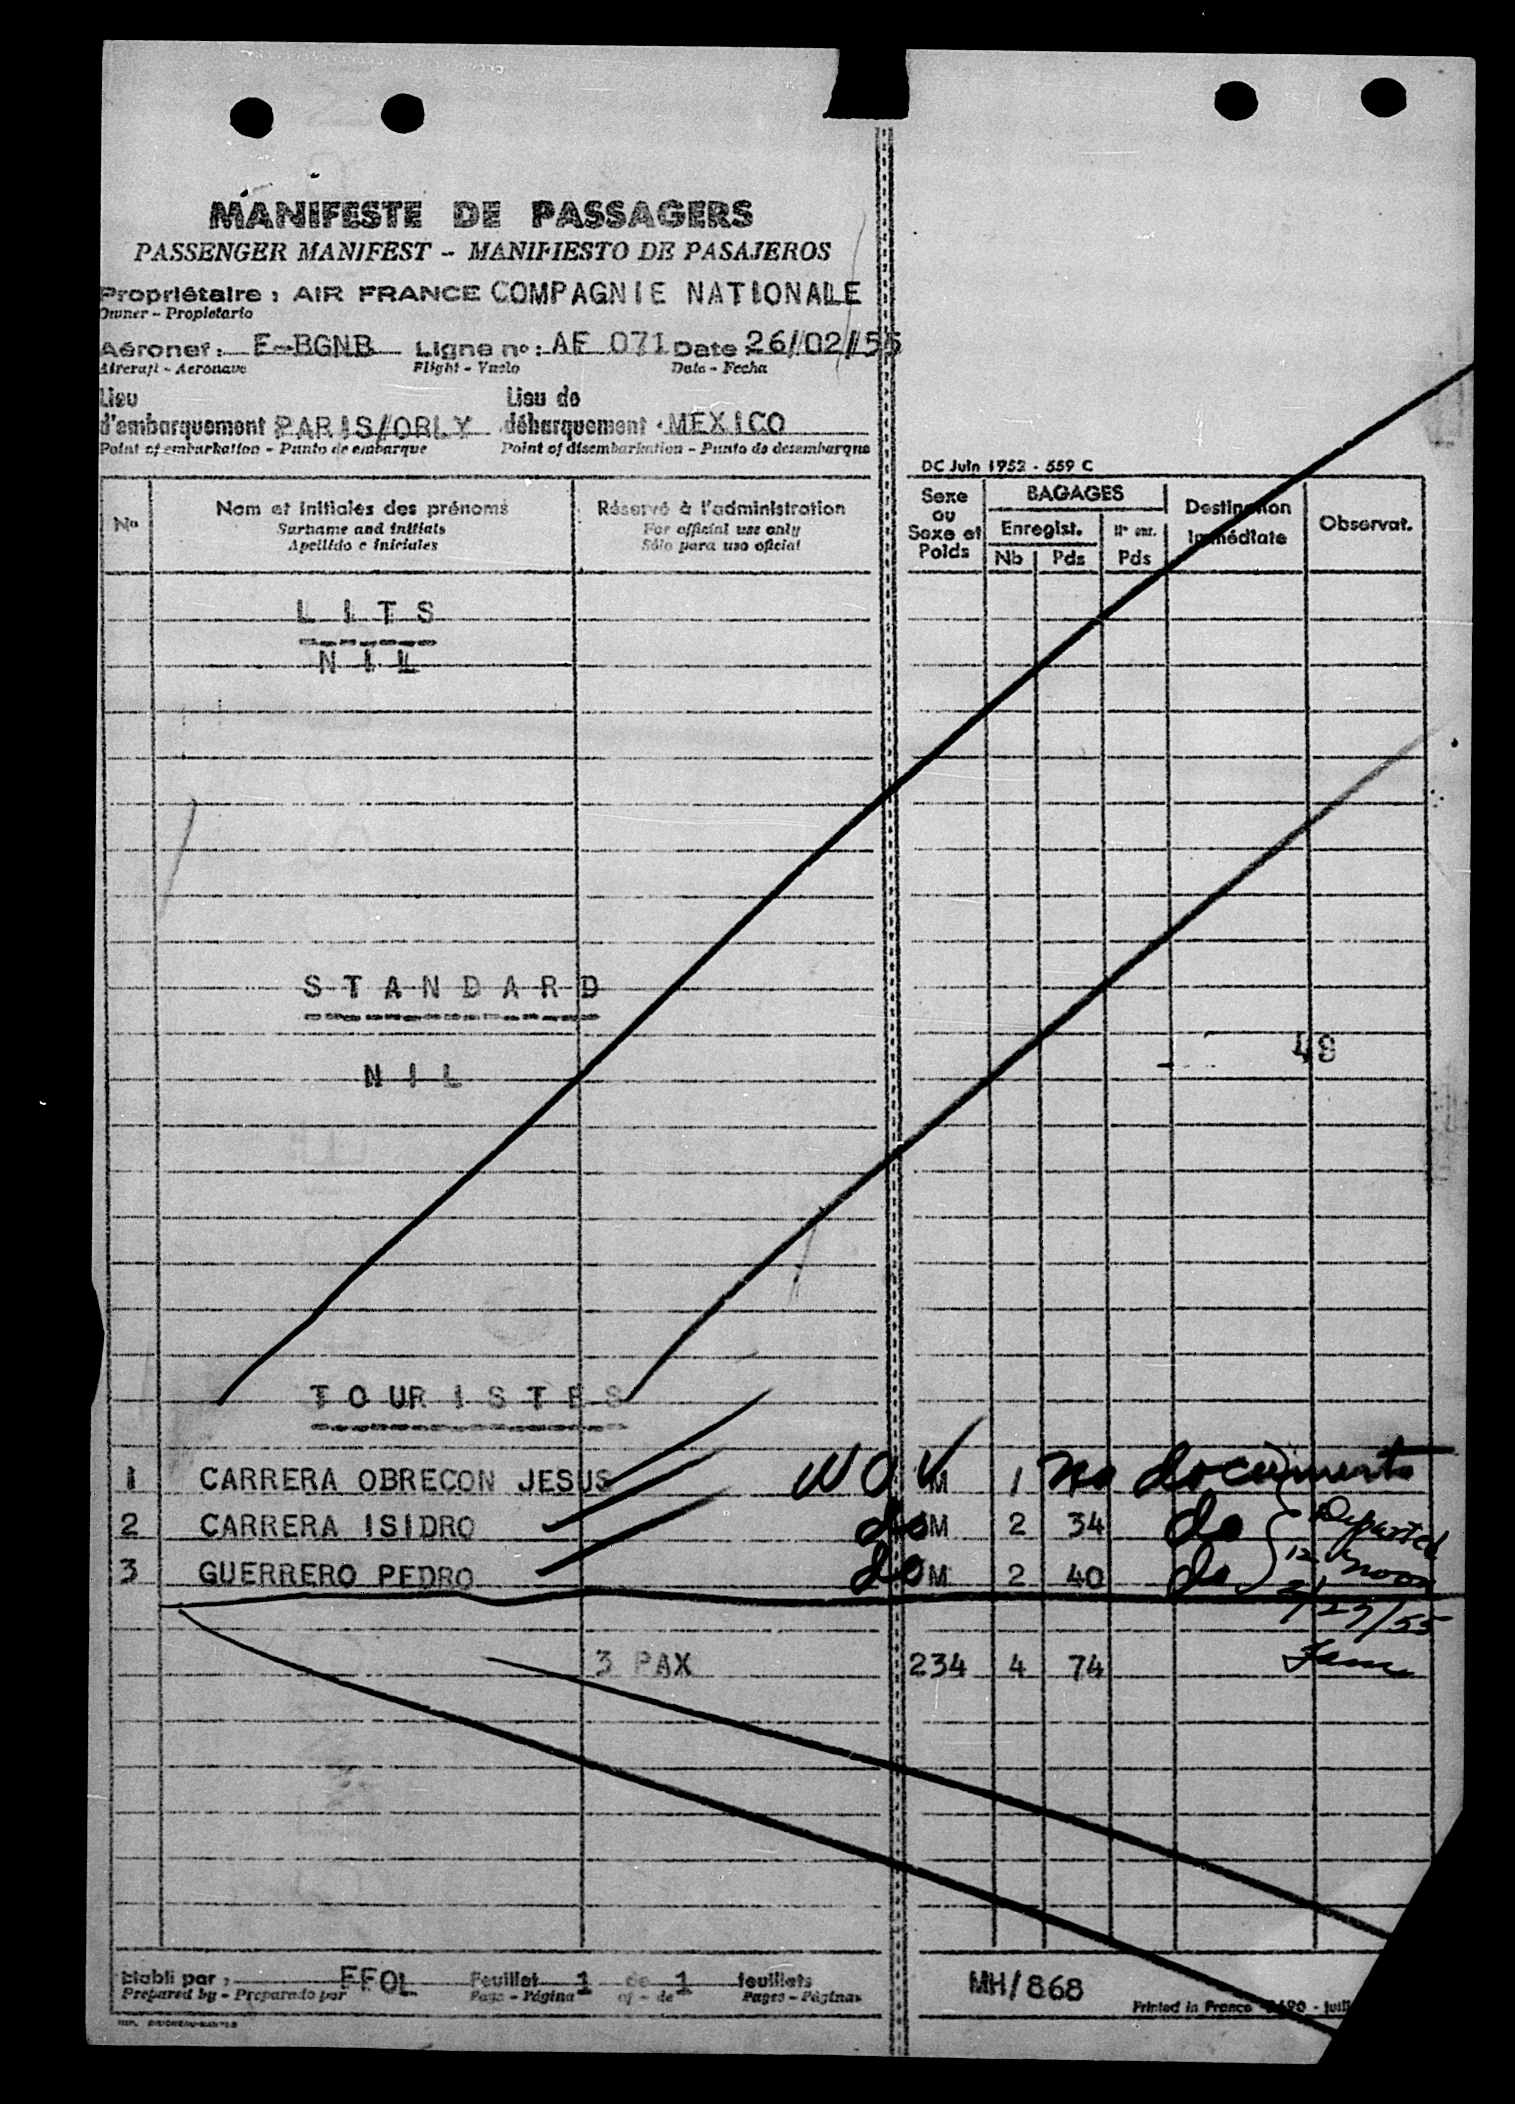 MANIFESTE DE PASSAGERS
PASSENGER MANIFEST - MANIFIESTO DE PASAJEROS
Propriétaire : AIR FRANCE COMPAGNIE NATIONALE
Owner - Propietario
Aéronef : F-BGNB Ligne no : AF 071 Date 26/02/55
Aircraft - Aeronave Flight - Vuelo Date - Fecha
Lieu d'embarquement PARIS/ORLY Lieu de débarquement MEXICO
Point of embarkation - Punto de embarque Point of disembarkation - Punto de desembarque
DC Juin 1952 - 559 C
No Nom et initiales des prénoms Réservé à l'administration Sexe ou Sexe et Poids BAGAGES Destination immédiate Observat.
Surname and initials For official use only Enregist.
Apellido e iniciales Sólo para uso oficial Nb Pds Pds
L I T S
N I L
S T A N D A R D
49
N I L
T O U R I S T E S
1 CARRERA OBRECON JESUS WOV M 1 no documents
2 CARRERA ISIDRO do M 2 34 do Departed
3 GUERRERO PEDRO do M 2 40 do 12 noon
2/27/55
3 PAX 234 4 74
Etabli par : FFOL Feuillet 1 de 1 feuillets MH/868
Prepared by - Preparado por Page - Página of - de Pages - Páginas
Printed in France